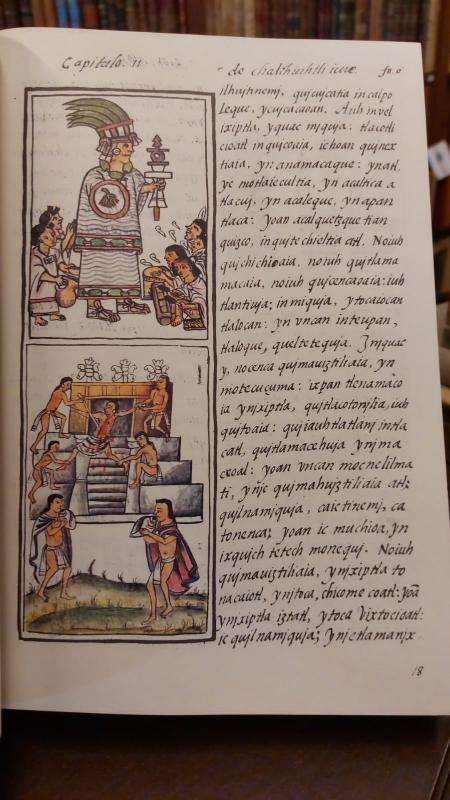 Capitulo. 11
de chalchiuhtli icue. fo. 6
ilhujtinemj, qujcujcatia incalpo
leque, ycujcacaoan. Auh in vel
ixiptla, yquac mjquja: tlaiotli
cioatl inqujcoaia, ichoan qujnex
tiaia, yn anamacaque: yn atl,
ye motlaiecultia, yn acaltica a
tlacuj, yn acaleque, yn apan
tlaca: yoan acalquetzque tian
quizco, inqujtechieltia atl. No iuh
qujchichioaia, no iuh qujtlama
macaia, no iuh qujcencaoaia: iuh
tlantiuja; in miquja, ytocaiocan
tlalocan: yn vncan inteupan,
tlaloque, queltetequja. Jmjquac
y, nocenca qujmauiztiliaia, yn
motecuçuma: ixpan tlenamaco
ia ynjxiptla, qujtlacotonjlia, iuh
qujtoaia: qujiauhtlatlanj intla
catl, qujtlamacehuja ynjma
ceoal: yoan vncan mocneliima
ti, ynjc qujmahujztiliaia atl;
qujlnamjquja, caic tinemj, ca
tonenca; yoan ic muchioa, yn
ixqujch tetech monequj. No iuh
qujmaviztiliaia, ynjxiptla to
nacaiotl, ynjtoca, chicome coatl: yoã
ynjxiptla iztatl, ytoca Vixtocioatl:
ic qujlnamjquja; ynjc tlamanjx
18